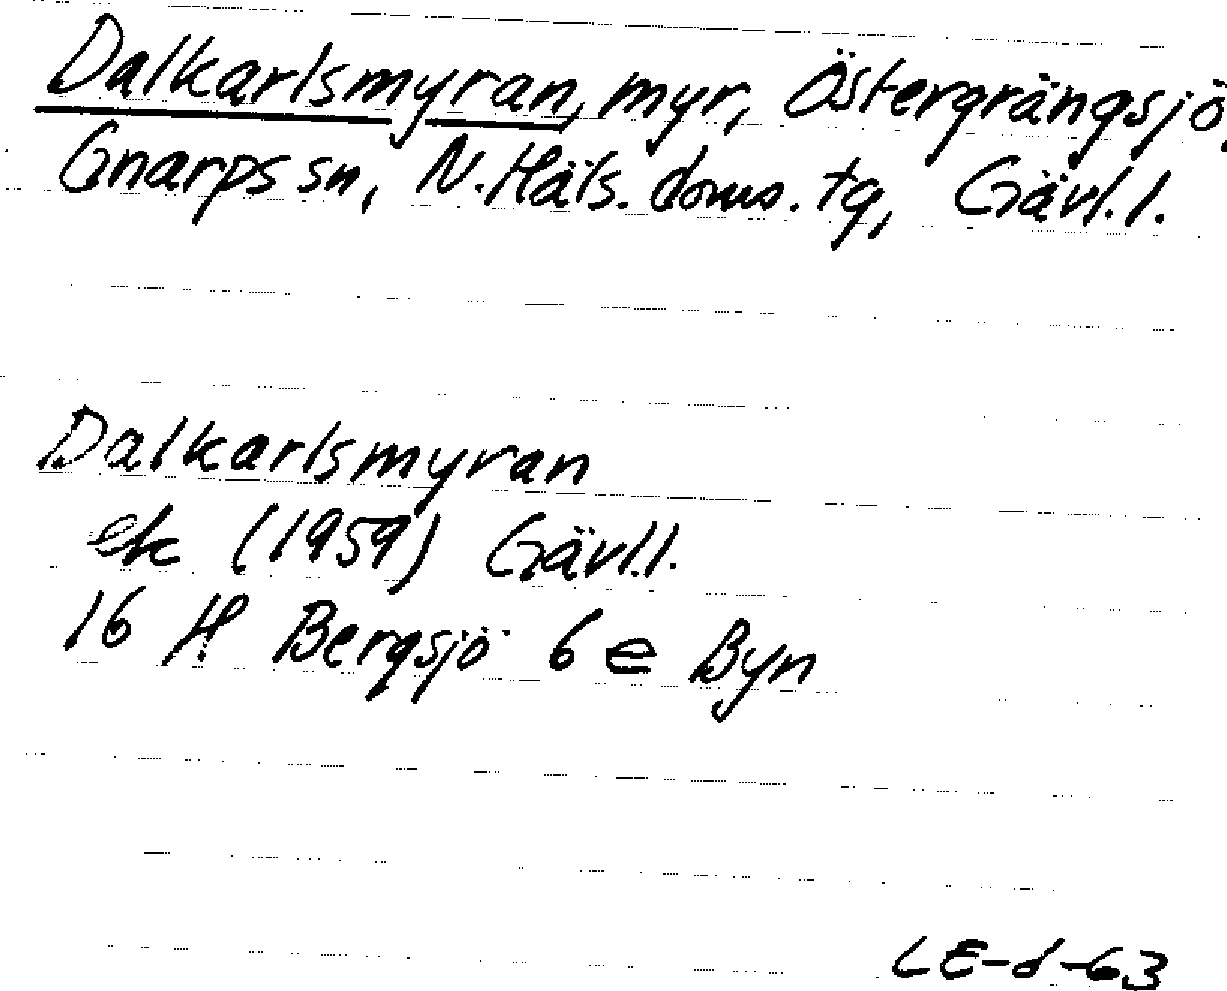 Dalkarlsmyran, myr, Östergrängsjö,
Gnarps sn, N. Häls. doms. tg, Gävl. l.
Dalkarlsmyran
ek (1959) Gävl.l.
16 H Bergsjö 6 e Byn
LE-d-63